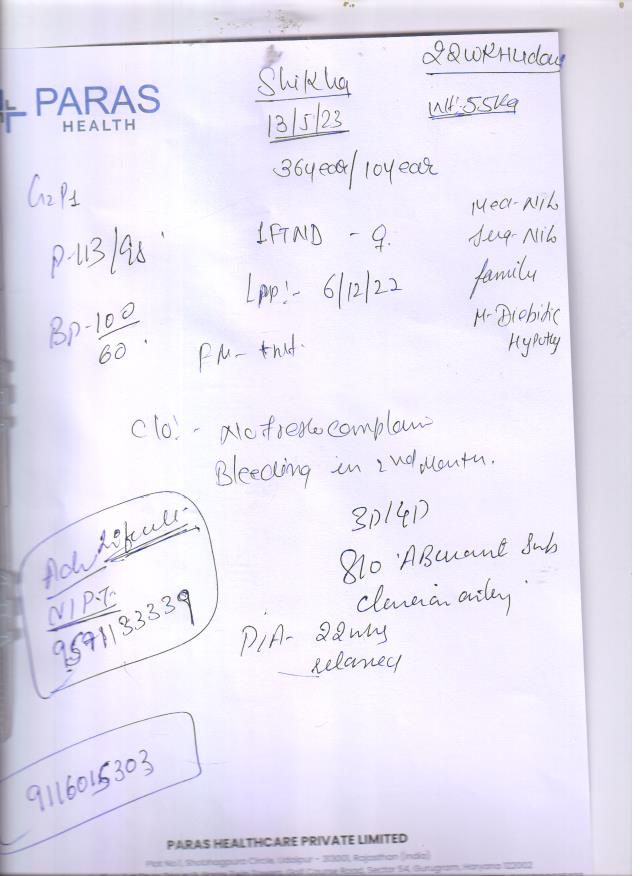 22WK+4day
Shikha
PARAS
HEALTH
13/5/23
Wt:-55kg
36year/10year
G2P1
Med-Nil
P-113/98
1FTND - ♀
Surg-Nil
LMP:- 6/12/22
family
BP-100/60
M-Diebitic
Hypothy
FM-
C/O:- No fresh complain
Bleeding in 2nd Month.
3D/4D
Adv
S/O ABerrant Sub
Clavian artery
N/P.T.
9571133339
P/A- 22wks
relaxed
9116015303
PARAS HEALTHCARE PRIVATE LIMITED
Plot No.1, Shobhagpura Circle, Udaipur - 313001, Rajasthan (India)
Sector 54, Gurugram, Haryana 122002